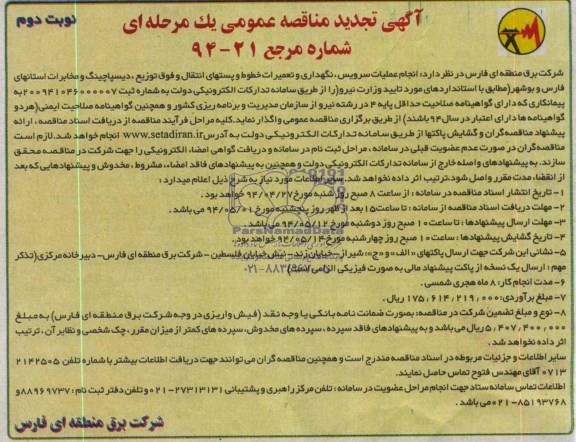 آگهی تجدید مناقصه عمومی یك مرحله ای
نوبت دوم
شماره مرجع ۲۱-۹۴
شرکت برق منطقه ای فارس در نظر دارد: انجام عملیات سرویس، نگهداری و تعمیرات خطوط و پستهای انتقال و فوق توزیع، دیسپاچینگ و مخابرات استانهای
فارس و بوشهر (مطابق با استانداردهای مورد تایید وزارت نیرو) را از طریق سامانه تدارکات الکترونیکی دولت به شماره ثبت ۲۰۰۹۴۱۰۴۶۰۰۰۰۰۷ به
پیمانکاری که دارای گواهینامه صلاحیت حداقل پایه ۴ در رشته نیرو از سازمان مدیریت و برنامه ریزی کشور و همچنین گواهینامه صلاحیت ایمنی (هر دو
گواهینامه ها دارای اعتبار در سال ۹۴ باشند) از طریق برگزاری مناقصه عمومی واگذار نماید. کلیه مراحل فرآیند مناقصه از دریافت اسناد مناقصه، ارائه
پیشنهاد مناقصه گران و گشایش پاکتها از طریق سامانه تدارکات الکترونیکی دولت به آدرس www.setadiran.ir انجام خواهد شد. لازم است
مناقصه گران در صورت عدم عضویت قبلی در سامانه، مراحل ثبت نام در سامانه و دریافت گواهی امضا، الکترونیکی را جهت شرکت در مناقصه محقق
سازند. به پیشنهادهای واصله خارج از سامانه تدارکات الکترونیکی دولت و همچنین به پیشنهادهای فاقد امضا، مشروط، مخدوش و پیشنهادهایی که بعد
از انقضا، مدت مقرر واصل شود، ترتیب اثر داده نخواهد شد. سایر اطلاعات مورد نیاز به شرح ذیل اعلام میدارد:
۱- تاریخ انتشار اسناد مناقصه در سامانه: از ساعت ۸ صبح روز شنبه مورخ ۹۴/۰۴/۲۷ خواهد بود.
۲- مهلت دریافت اسناد مناقصه از سامانه: تا ساعت ۱۵ بعد از ظهر روز پنجشنبه مورخ ۹۴/۰۵/۰۱ می باشد.
۳- مهلت ارسال پیشنهادها: تا ساعت ۱۰ صبح روز دوشنبه مورخ ۹۴/۰۵/۱۲ می باشد.
۴- تاریخ گشایش پیشنهادها: ساعت ۱۰ صبح روز چهارشنبه مورخ ۹۴/۰۵/۱۴ خواهد بود.
۵- نشانی این شرکت جهت ارسال پاکتهای «الف» و «ج»: شیراز- خیابان زند- نبش خیابان فلسطین- شرکت برق منطقه ای فارس- دبیرخانه مرکزی (تذکر
مهم: ارسال یک نسخه از پاکت پیشنهاد مالی به صورت فیزیکی الزامی است)
۶- مدت انجام کار: ۸ ماه هجری شمسی.
۷- مبلغ برآوردی: ۱۷۵,۶۱۴,۲۱۹,۰۰۰ ریال.
۸- نوع و مبلغ تضمین شرکت در مناقصه: بصورت ضمانت نامه بانکی یا وجه نقد (فیش واریزی در وجه شرکت برق منطقه ای فارس) به مبلغ
۵,۴۰۷,۴۰۰,۰۰۰ ریال می باشد و به پیشنهادهای فاقد سپرده، سپرده های مخدوش، سپرده های کمتر از میزان مقرر، چک شخصی و نظایر آن، ترتیب
اثر داده نخواهد شد.
سایر اطلاعات و جزئیات مربوطه در اسناد مناقصه مندرج است و همچنین مناقصه گران می توانند جهت دریافت اطلاعات بیشتر با شماره تلفن ۲۱۴۲۵۰۵
۰۷۱۳ آقای مهندس فتوح تماس حاصل نمایند.
اطلاعات تماس سامانه ستاد جهت انجام مراحل عضویت در سامانه: تلفن مرکز راهبری و پشتیبانی ۲۷۳۱۳۱۳۱-۰۲۱ و تلفن دفتر ثبت نام: ۸۸۹۶۹۷۳۷ و
۸۵۱۹۳۷۶۸-۰۲۱ می باشد.
شرکت برق منطقه ای فارس
ParsNamadData